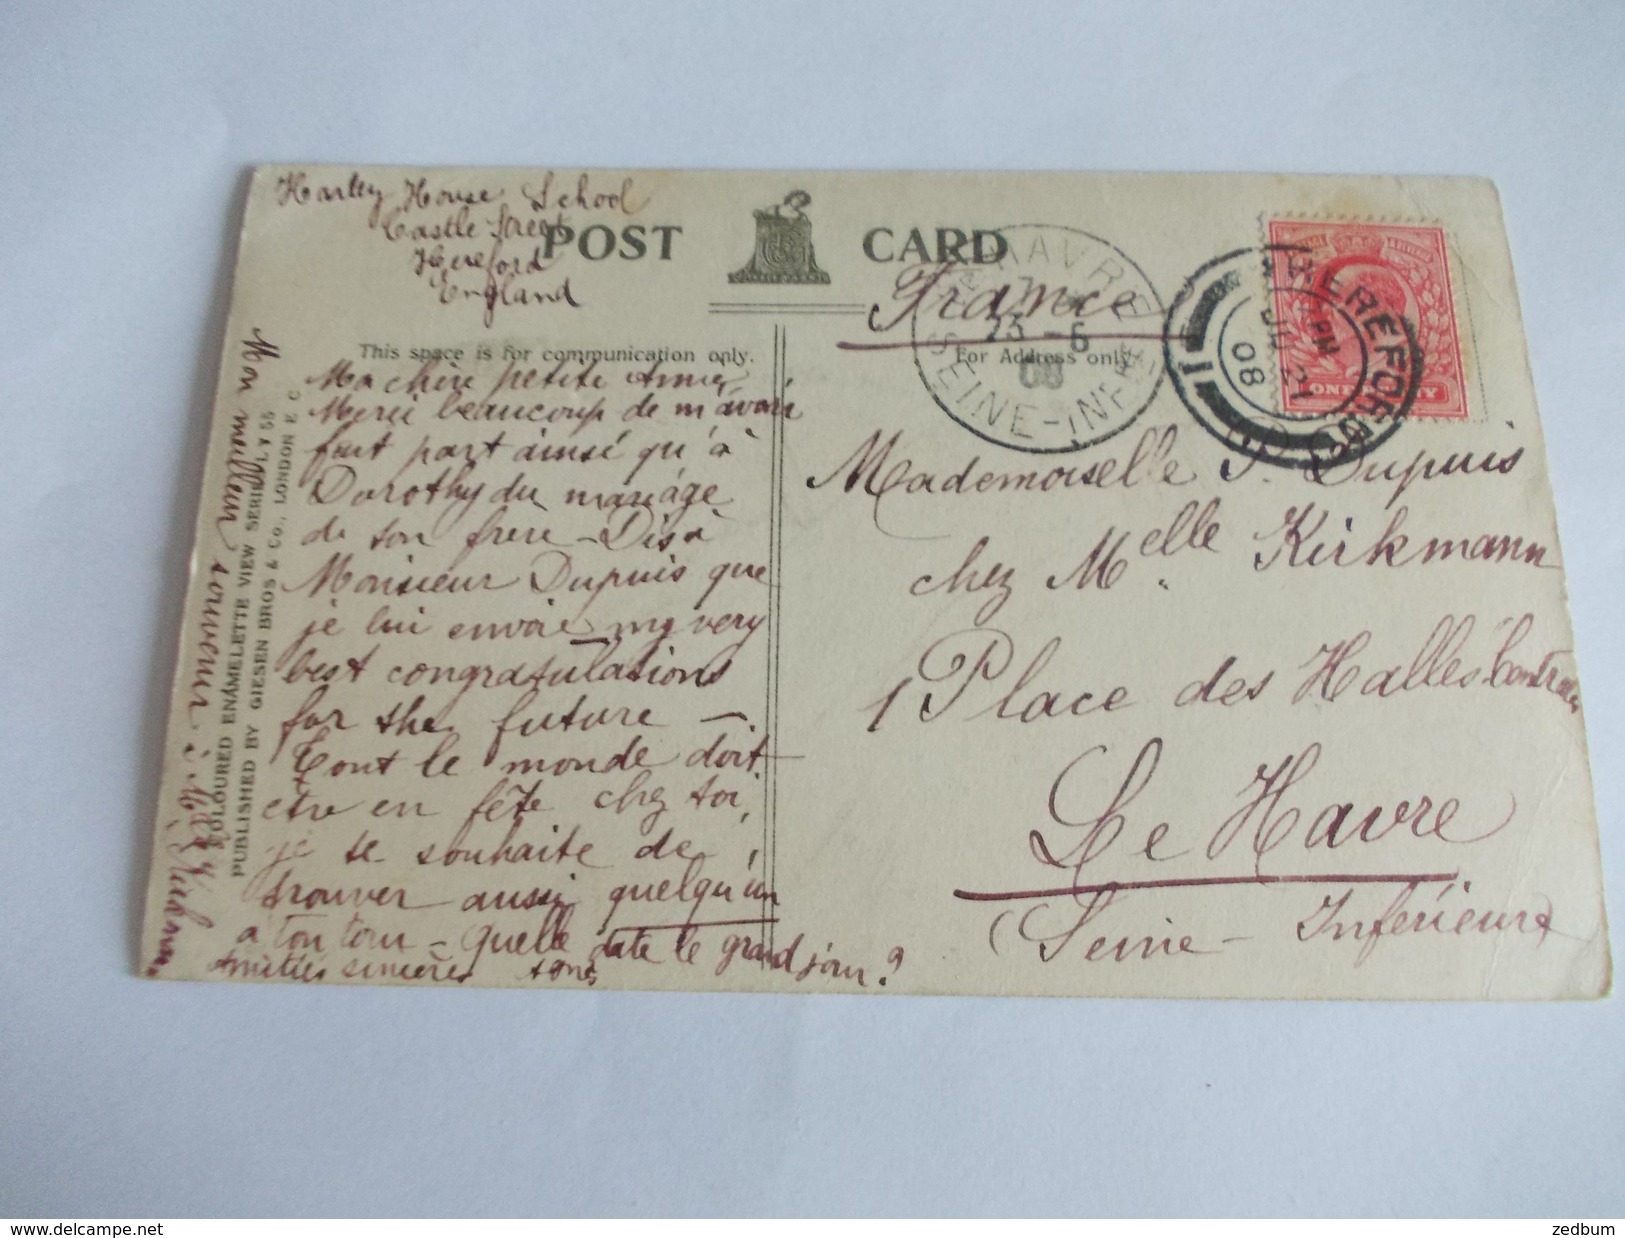 Harley House School
Castle Street
Hereford
England
POST CARD
France
This space is for communication only.
For Address only
Ma chère petite Amie,
Merci beaucoup de m'avoir
fait part ainsi qu'à
Dorothy du mariage
de son frère - Dis à
Monsieur Dupuis que
je lui envoie my very
best congratulations
for the future -.
Tout le monde doit
être en fête chez toi,
je te souhaite de
trouver aussi quelqu'un
à ton tour - Quelle date le grand jour?
Amitiés sincères
Mon meilleur souvenir à Melle Kirkmann
COLOURED ENAMELETTE VIEW SERIES L Y 55
PUBLISHED BY GIESEN BROS & CO., LONDON E C
LE HAVRE
23 - 6
08
SEINE-INFRE
HEREFORD
PM
JU 21
08
1
ONE PENNY
Mademoiselle Dupuis
chez Melle Kirkmann
1 Place des Halles Centrales
Le Havre
(Seine - Inférieure)
zedbum